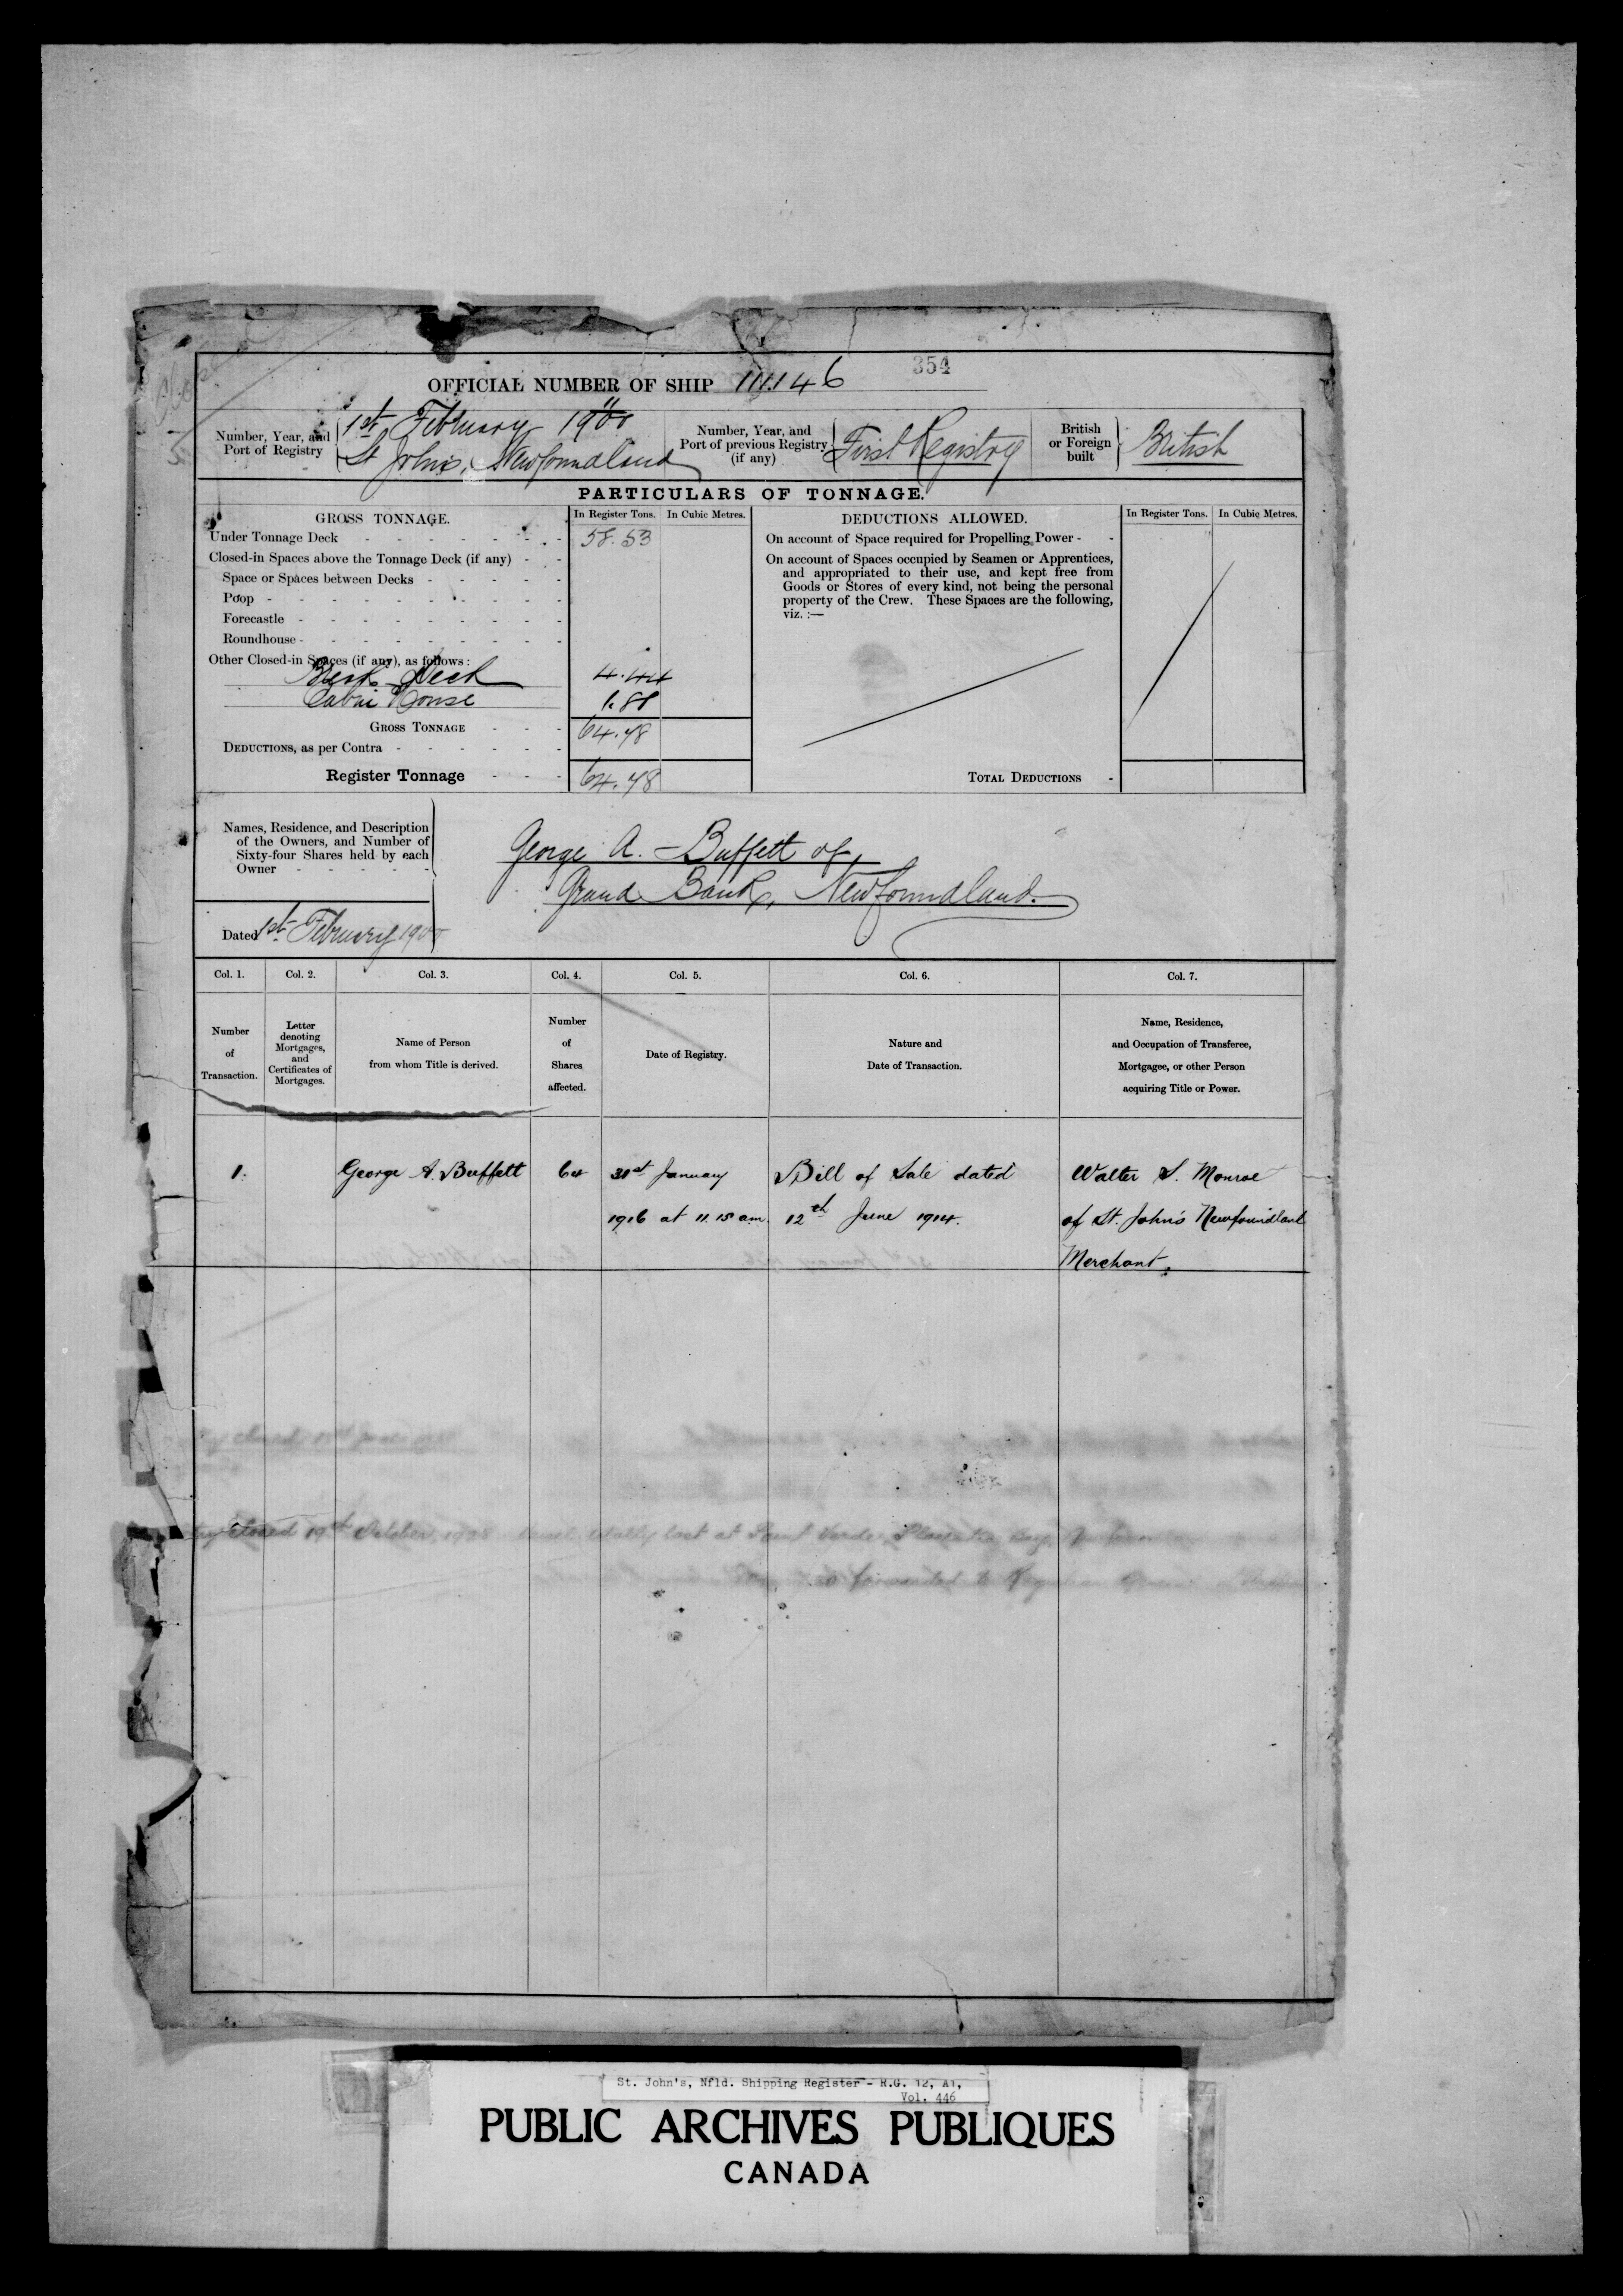 354
OFFICIAL NUMBER OF SHIP 111.146
Number, Year, and Port of Registry
1st February 1900
St John's, Newfoundland
Number, Year, and Port of previous Registry (if any)
First Registry
British or Foreign built
British
PARTICULARS OF TONNAGE.
GROSS TONNAGE.
In Register Tons.
In Cubic Metres.
Under Tonnage Deck - 58.53
Closed-in Spaces above the Tonnage Deck (if any) -
Space or Spaces between Decks -
Poop -
Forecastle -
Roundhouse -
Other Closed-in Spaces (if any), as follows:
Deck 4.44
Cabin House
GROSS TONNAGE - 64.48
DEDUCTIONS, as per Contra -
Register Tonnage - 64.48
DEDUCTIONS ALLOWED.
In Register Tons.
In Cubic Metres.
On account of Space required for Propelling Power -
On account of Spaces occupied by Seamen or Apprentices,
and appropriated to their use, and kept free from
Goods or Stores of every kind, not being the personal
property of the Crew. These Spaces are the following,
viz. :—
TOTAL DEDUCTIONS -
Names, Residence, and Description
of the Owners, and Number of
Sixty-four Shares held by each
Owner -
George A. Buffett of,
Grand Bank, Newfoundland.
Dated 1st February 1900
Col. 1.
Col. 2.
Col. 3.
Col. 4.
Col. 5.
Col. 6.
Col. 7.
Number
of
Transaction.
Letter
denoting
Mortgages,
and
Certificates of
Mortgages.
Name of Person
from whom Title is derived.
Number
of
Shares
affected.
Date of Registry.
Nature and
Date of Transaction.
Name, Residence,
and Occupation of Transferee,
Mortgagee, or other Person
acquiring Title or Power.
1. George A. Buffett 64 31st January Bill of Sale dated Walter S. Monroe
1916 at 11.15 am. 12th June 1914. of St. John's Newfoundland
Merchant.
closed 19th October, 1928 totally lost at Point Verde, Placentia Bay,
forwarded to
St. John's, Nfld. Shipping Register - R.G. 12, A1,
Vol. 446
PUBLIC ARCHIVES PUBLIQUES
CANADA